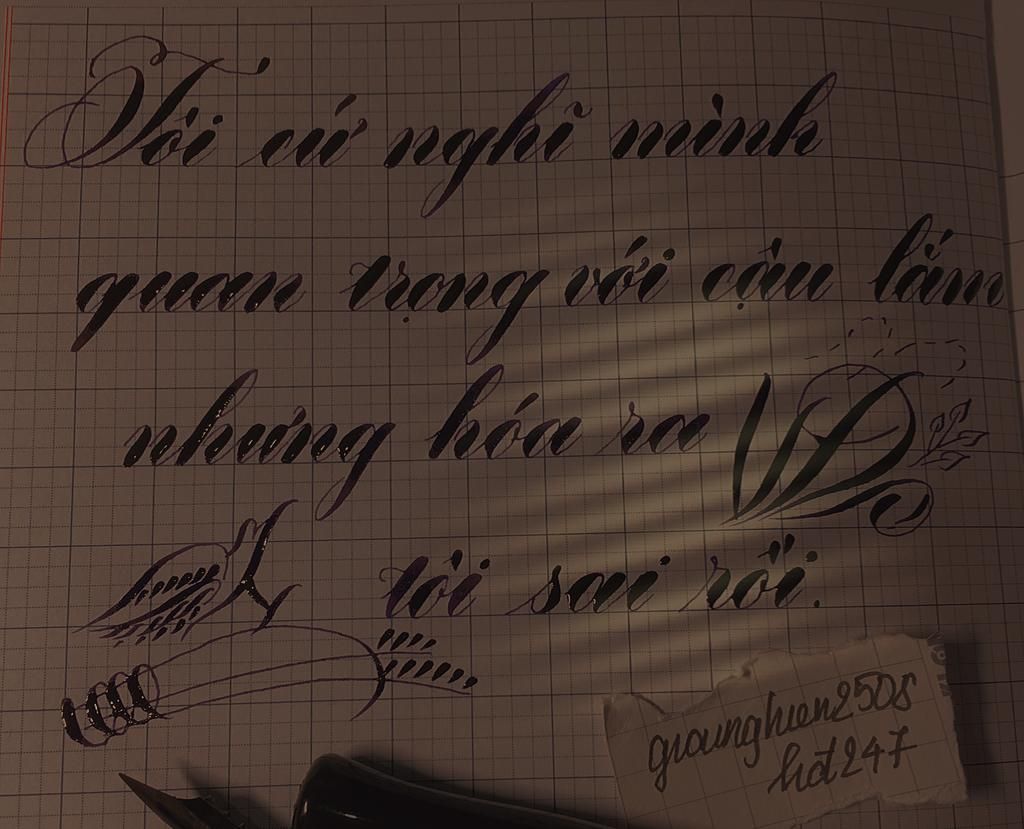 Tôi cứ nghĩ mình
quan trọng với cậu lắm
nhưng hóa ra
tôi sai rồi.
hd247